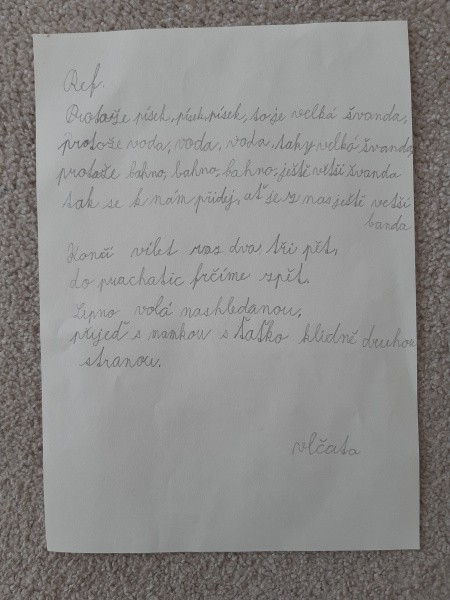 Ref.
Protože písek, písek, písek, to je velká švanda,
protože voda, voda, voda, tahy velká švanda
protože bahno, bahno, bahno, ještě větší švanda
tak se k nám přidej, ať je z nas ještě vetší
banda
Končí vílet raz, dva, tři pět,
do prachatic frčíme zpět.
Lipno volá nashledanou,
přijeď s mamkou s taťko klidně druhou
stranou.
vlčata